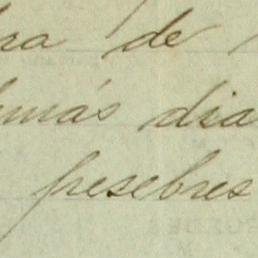 ra de
demás dia
pesebres